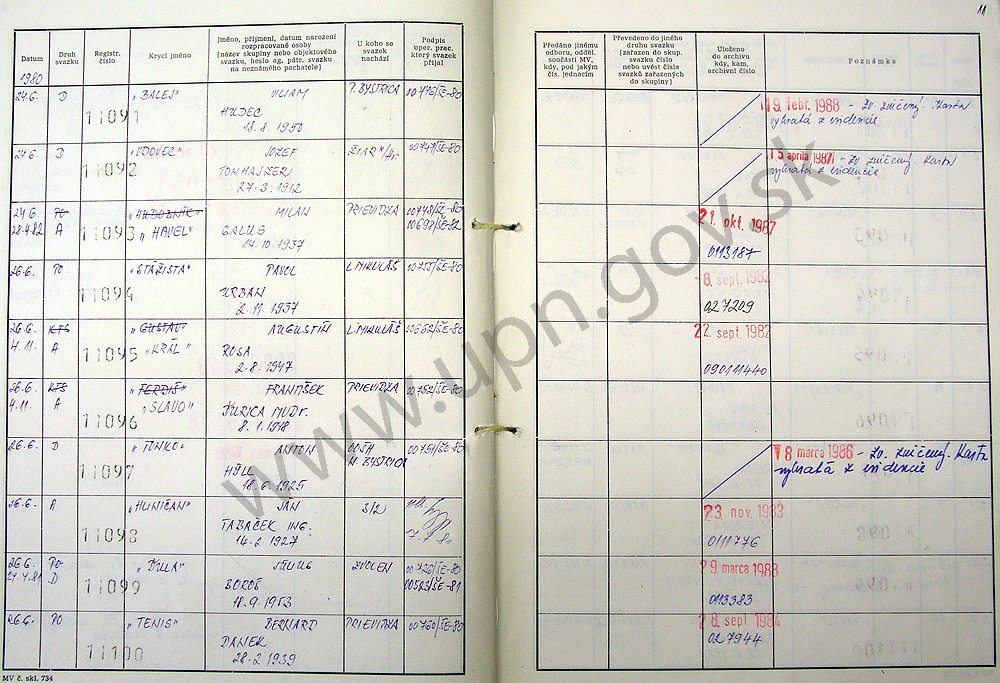 11
Datum
Druh svazku
Registr. číslo
Krycí jméno
Jméno, příjmení, datum narození rozpracované osoby (název skupiny nebo objektového svazku, heslo ag. pátr. svazku na neznámého pachatele)
U koho se svazek nachází
Podpis oper. prac. který svazek přijal
Předáno jinému odboru, odděl. součásti MV, kdy, pod jakým čís. jednacím
Převedeno do jiného druhu svazku (zařazen do skup. svazku číslo nebo uvést čísla svazků zařazených do skupiny)
Uloženo do archivu kdy, kam, archivní číslo
Poznámka
1980
24.6. D "BALEJ" VILIAM P. BYSTRICA 00746/ŠE-80
11091 HUDEC
18.8.1950
19. febr. 1988 - Zv. zničený. Karta
vybratá z evidencie
24.6. D "VDOVEC" JOZEF ŽIAR n/Hr 00747/ŠE-80
11092 TONHAJZER
27-3.1912
15 apríla 1987 - Zv. zničený. Karta
vybratá z evidencie
24.6. PO "HUDOBNÍK" MILAN PRIEVIDZA 00748/ŠE-80
28.4.82 A 11093 "HAVEL" GALUS 00698/ŠE-82
14.10.1937
21. okt. 1987
0113187
26.6. PO "STÁŽISTA" PAVOL L. MIKULÁŠ 00753/ŠE-80
11094 URBAN
2.11.1937
-8. sept. 1982
027209
26.6. KTS "GUSTAV" AUGUSTÍN L. MIKULÁŠ 00652/ŠE-80
4.11. A 11095 "KRÁL" ROSA
2.8.1947
22. sept. 1982
090111440
26.6. KTS "FERDIŠ" FRANTIŠEK PRIEVIDZA 00752/ŠE-80
4.11. A 11096 "SLAVO" ĎURICA MUDr.
8.1.1918
26.6. D "TONKO" ANTON OOŠH 00751/ŠE-80
11097 HÝLL B. BYSTRICA
18.6.1925
18 marca 1986 - Zv. zničený. Karta
vybratá z evidencie
26.6. A "HUNIČAN" JÁN S/2
11098 TABAČEK ING.
14.2.1927
23. nov. 1983
0111776
26.6. PO "ĎULA" JÚLIUS ZVOLEN 00726/ŠE-80
24.4.81 D 11099 BOROŠ 00523/ŠE-81
18.9.1953
29. marca 1988
0113383
26.6. PO "TENIS" BERNARD PRIEVIDZA 00760/ŠE-80
11100 DANEK
28.2.1939
28. sept 1984
027944
MV č. skl. 734
www.upn.gov.sk